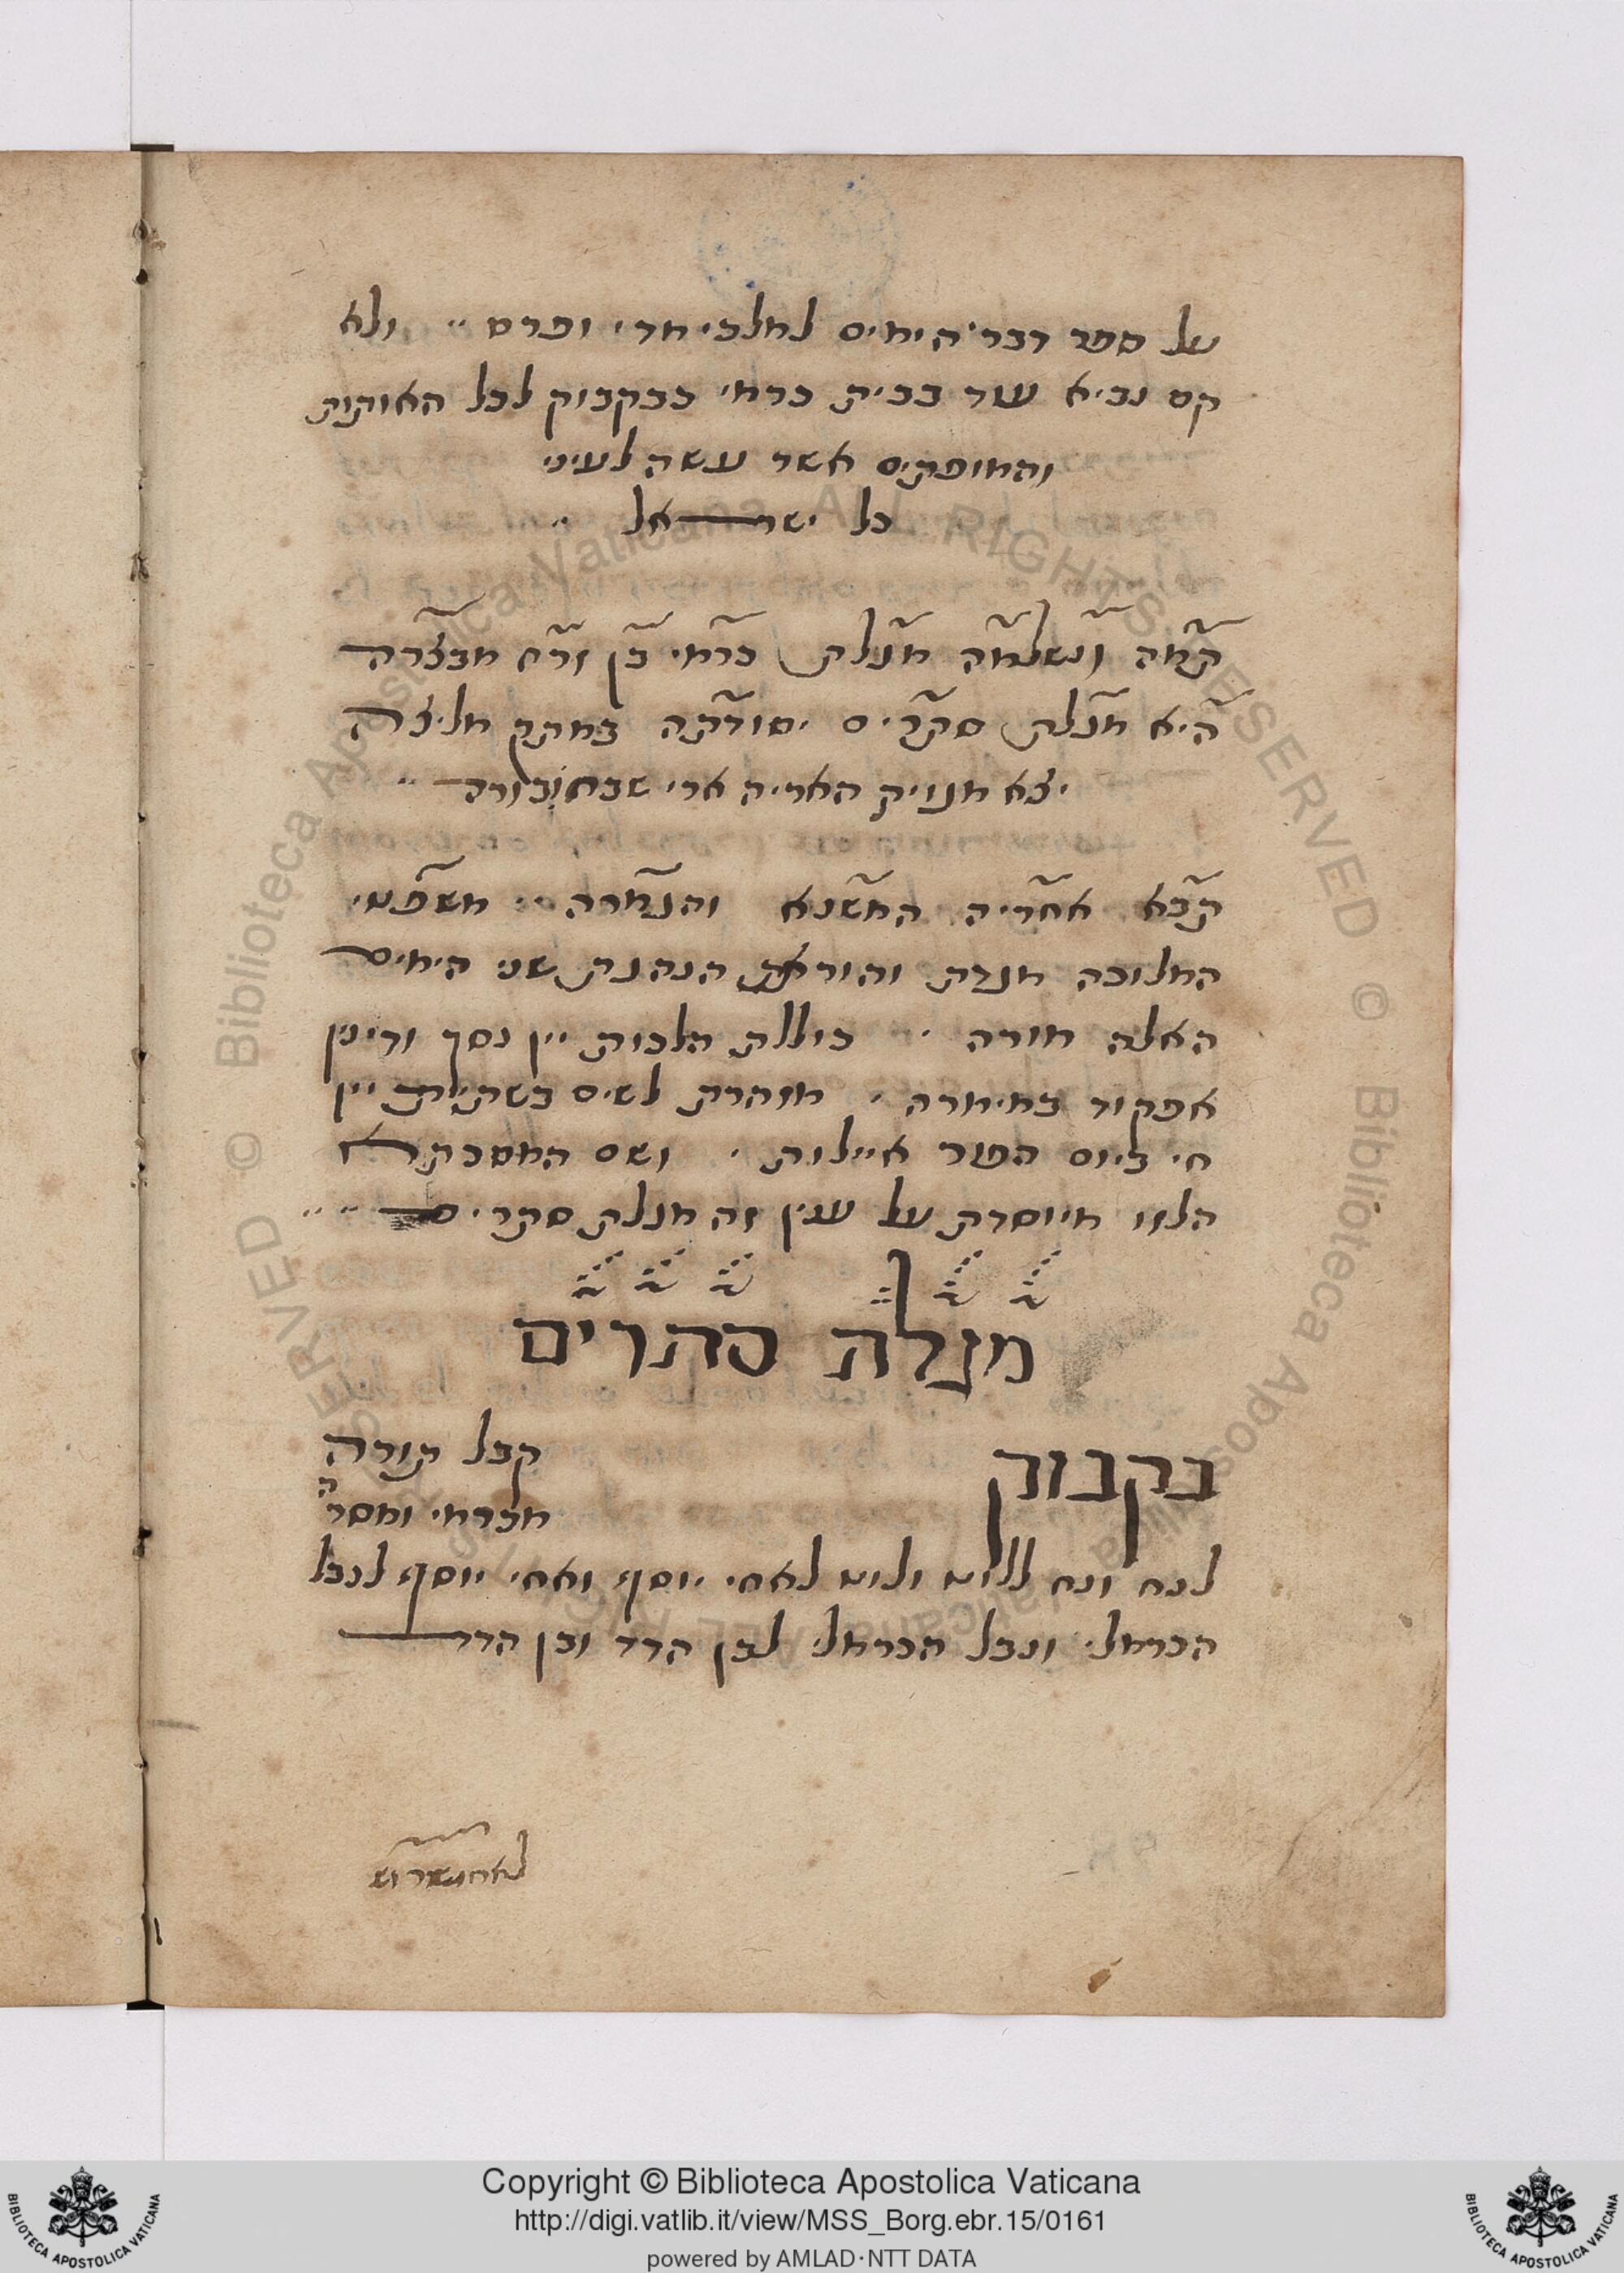 על ספר דברי הימים למלכי מדי ופרס ״ ולא
קם נביא עוד בבית כרמי כבקבוק לכל האותות
והמופתים אשר עשה לעיני
כל ישראל ״
תמה ונשלמה מגלת כרמי בן זרח מבצרה
היא מגלת סתרים יסודתה במתק מליצה
יצא מגויק האריה ארי שבחבורה ״
תבא אחריה המשנא והגמרה ׳׳ משפטי
המלוכה מגדת והוראת הנהגת שני הימים
האלה מורה ׳ כוללת הלכות יין נסך ודינין
אפקוד בחימרה ׳ מזהרת לשים בשתיית יין
חי ביום הפור איילות ׳ ושם המסכתא
הלזו מיוסדת על ענין זה מגלת סתרים ״ ״
מגלת סתרים
בקבוק
קבל תורה
מכרמי ומסרה
לנח ונח ללוט ולוט לאחי יוסף ואחי יוסף לנבל
הכרמלי ונבל הכרמלי לבן הדד ובן הדד
לאחשורוש
Copyright © Biblioteca Apostolica Vaticana
http://digi.vatlib.it/view/MSS_Borg.ebr.15/0161
powered by AMLAD·NTT DATA
BIBLIOTECA APOSTOLICA VATICANA
BIBLIOTECA APOSTOLICA VATICANA